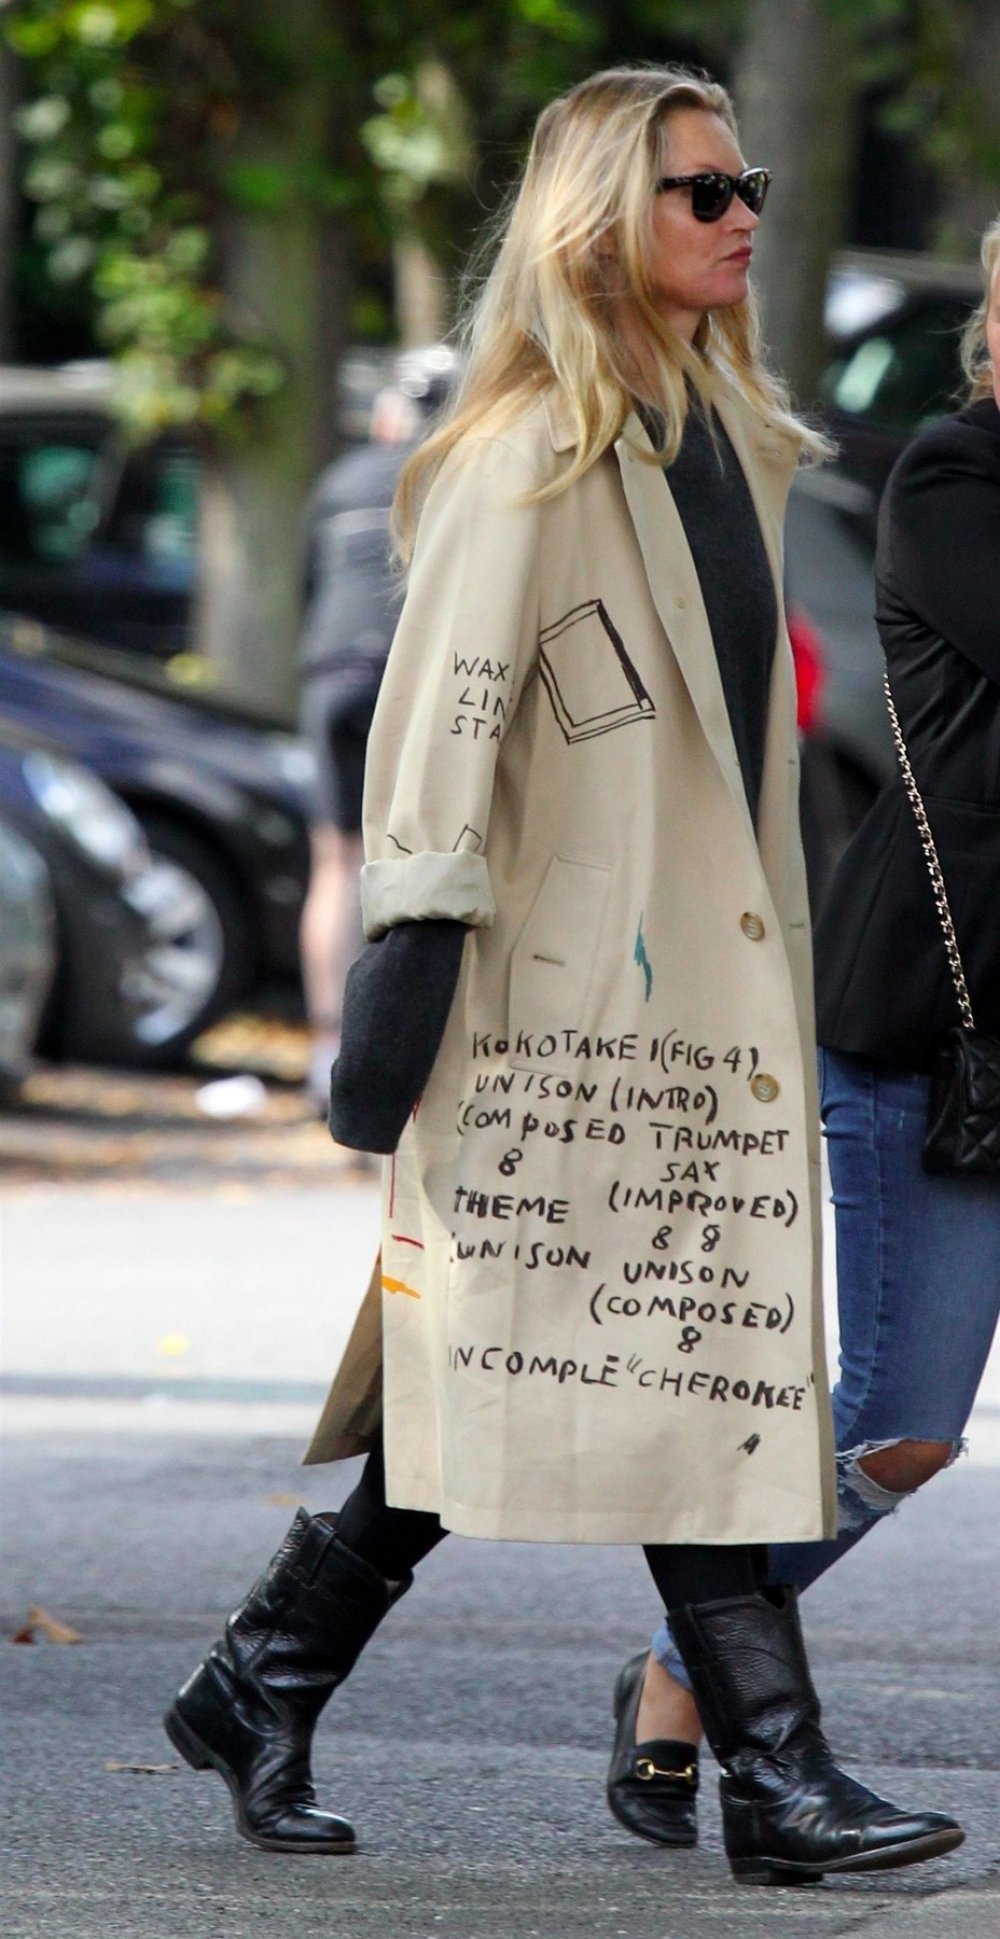 WAX
LIN
STA
KOKO TAKE 1 (FIG 4)
UNISON (INTRO)
(COMPOSED TRUMPET
8 SAX
THEME (IMPROVED)
8 8
(UNISON UNISON
(COMPOSED)
8
INCOMPLE "CHEROKEE"